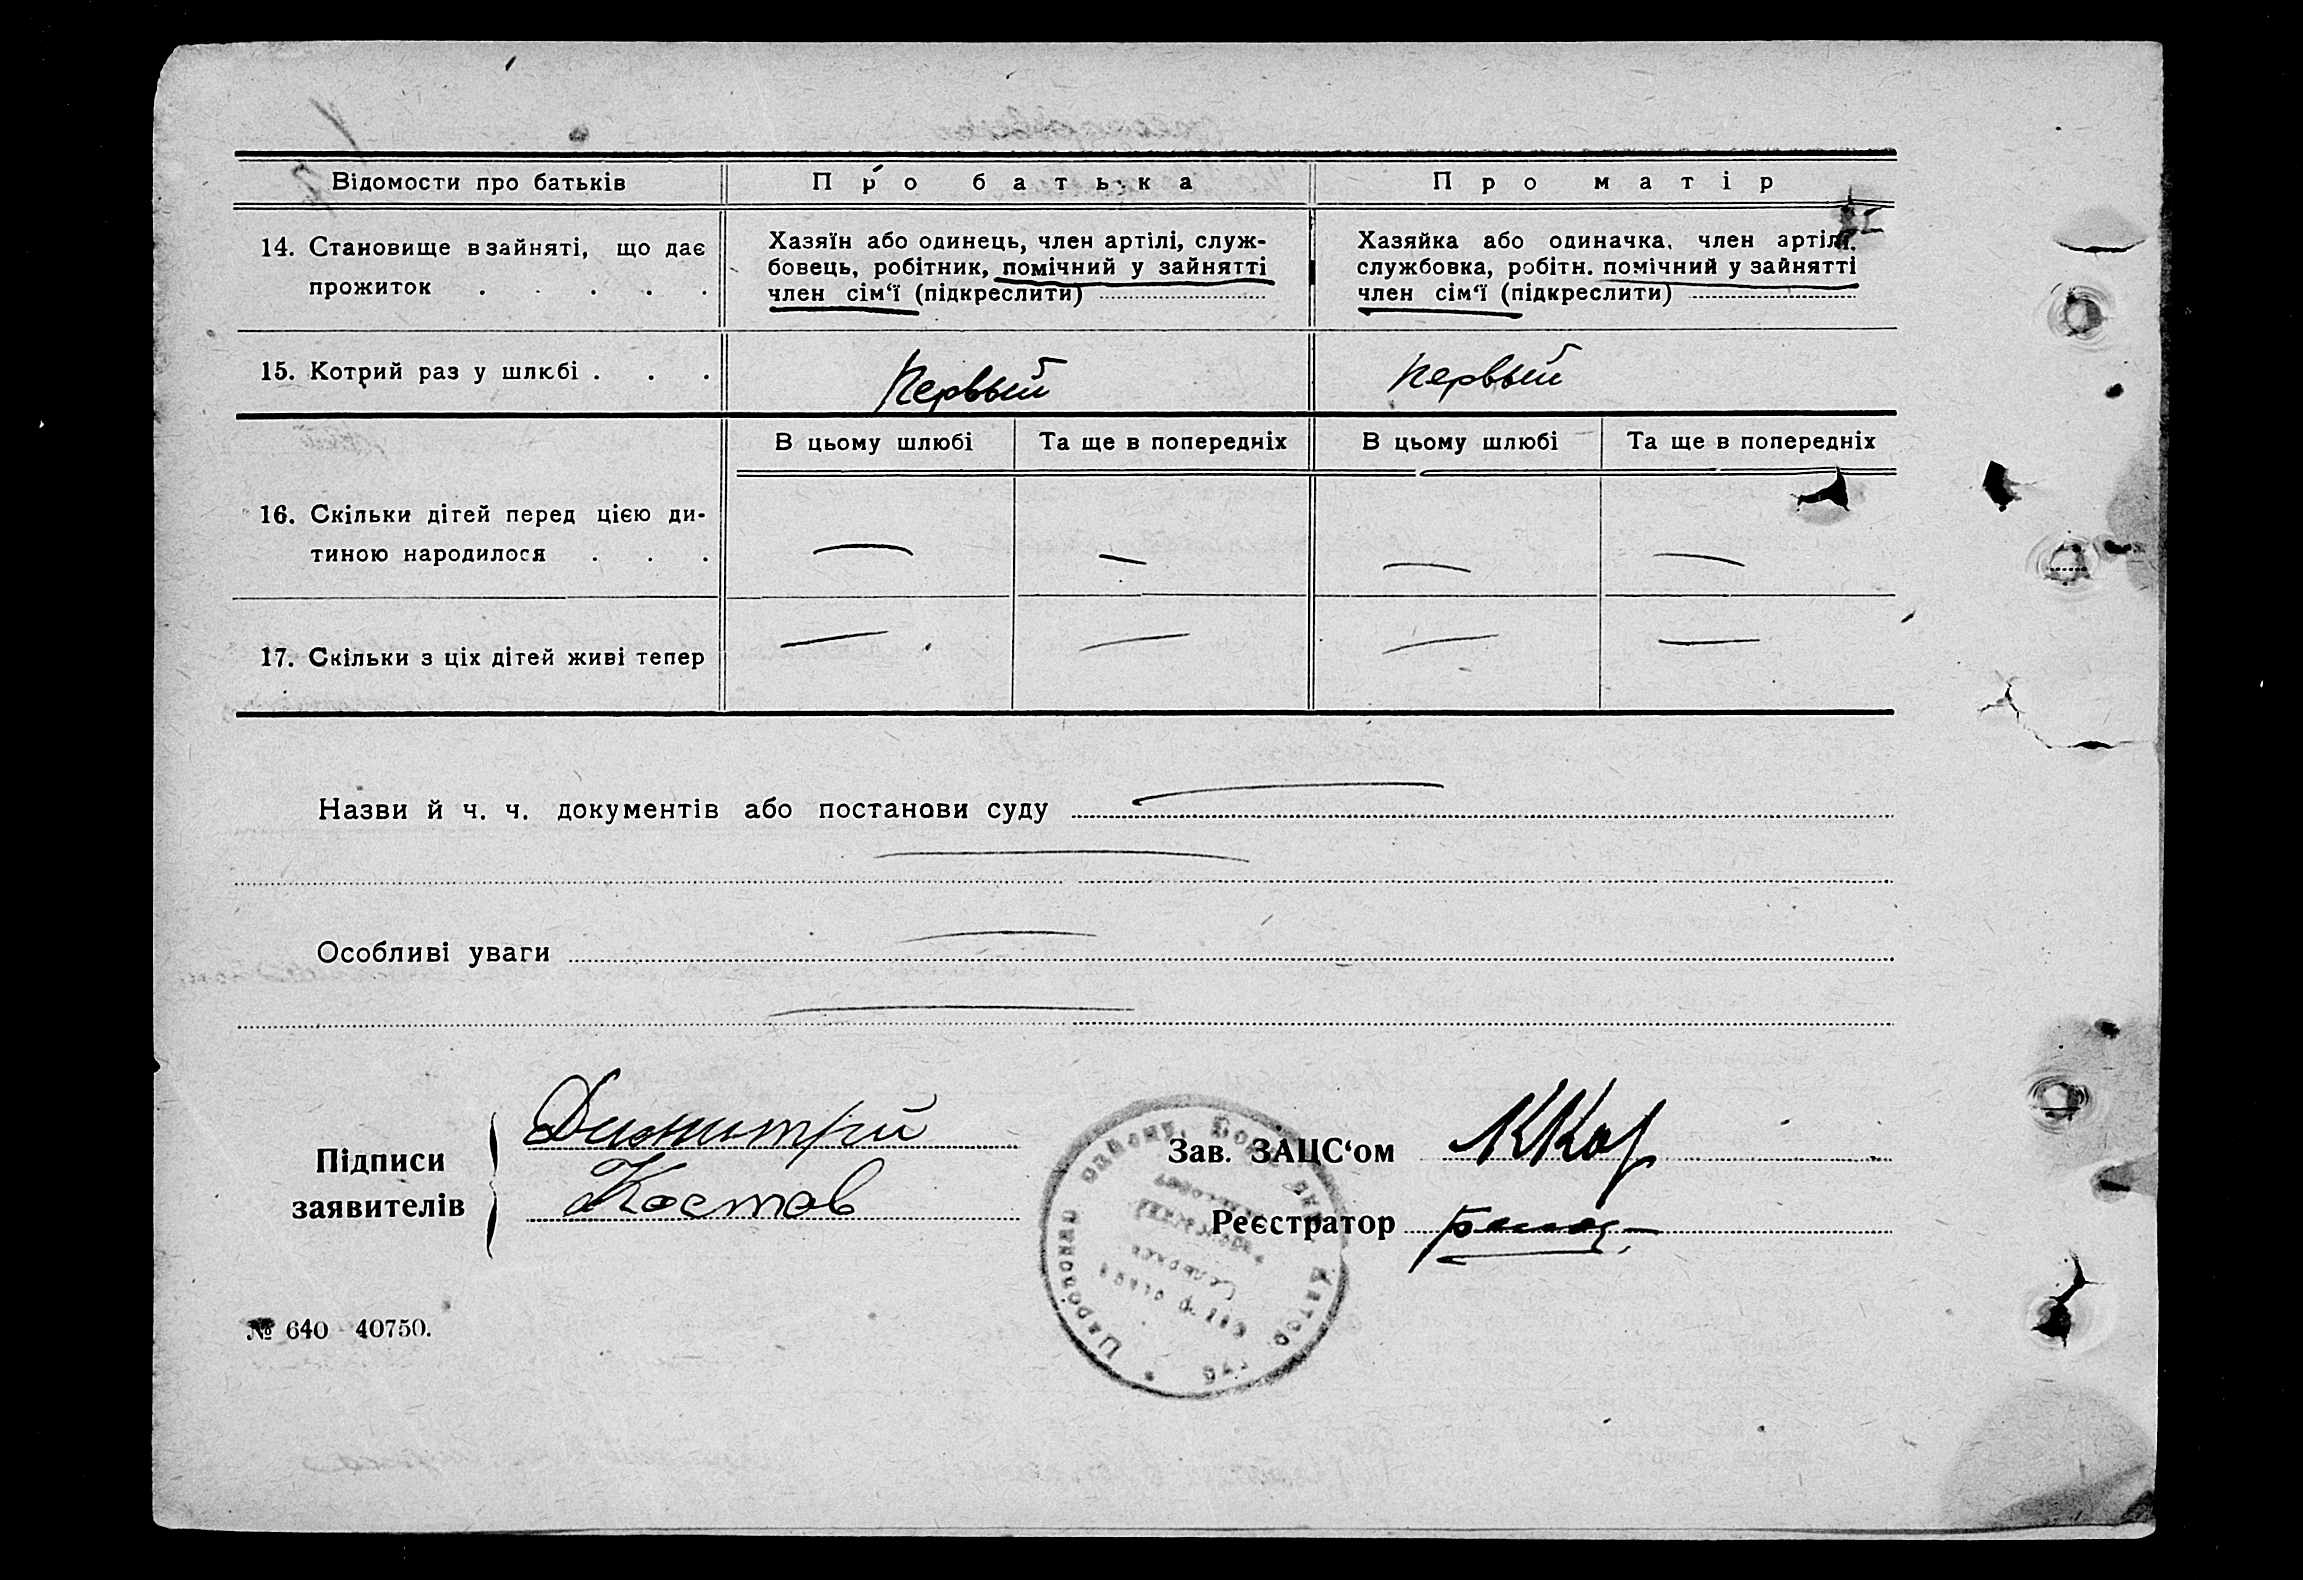 Відомости про батьків
Про батька
Про матір
14. Становище в зайняті, що дає
прожиток . . . . .
Хазяїн або одинець, член артілі, служ-
бовець, робітник, помічний у зайнятті
член сім‘ї (підкреслити)
Хазяйка або одиначка, член артілі,
службовка, робітн. помічний у зайнятті
член сім‘ї (підкреслити)
15. Котрий раз у шлюбі . . .
Первый
Первый
В цьому шлюбі
Та ще в попередніх
В цьому шлюбі
Та ще в попередніх
16. Скільки дітей перед цією ди-
тиною народилося . . .
— — — —
17. Скільки з ціх дітей живі тепер
— — — —
Назви й ч. ч. документів або постанови суду —
—
Особливі уваги —
—
Підписи
заявителів
Димитрий
Костов
Зав. ЗАЦС‘ом
Реєстратор
№ 640 40750.